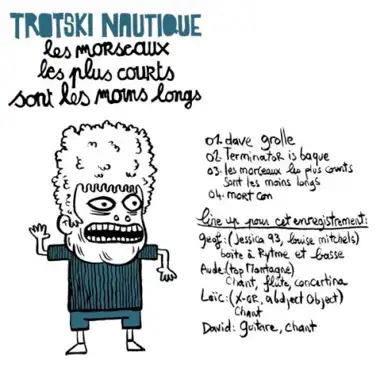 TROTSKI NAUTIQUE
les morseaux
les plus courts
sont les moins longs
01. dave grolle
02. TerminatoR is baque
03. les morceaux les plus courts
sont les moins longs
04. mort con
line up pour cet enregistrement:
Geof: (Jessica 93, louise mitchels)
boite à Rytme et basse
Aude: (top Montagne)
Chant, flûte, concertina
Loïc: (X-OR, abject Object)
Chant
David: guitare, chant